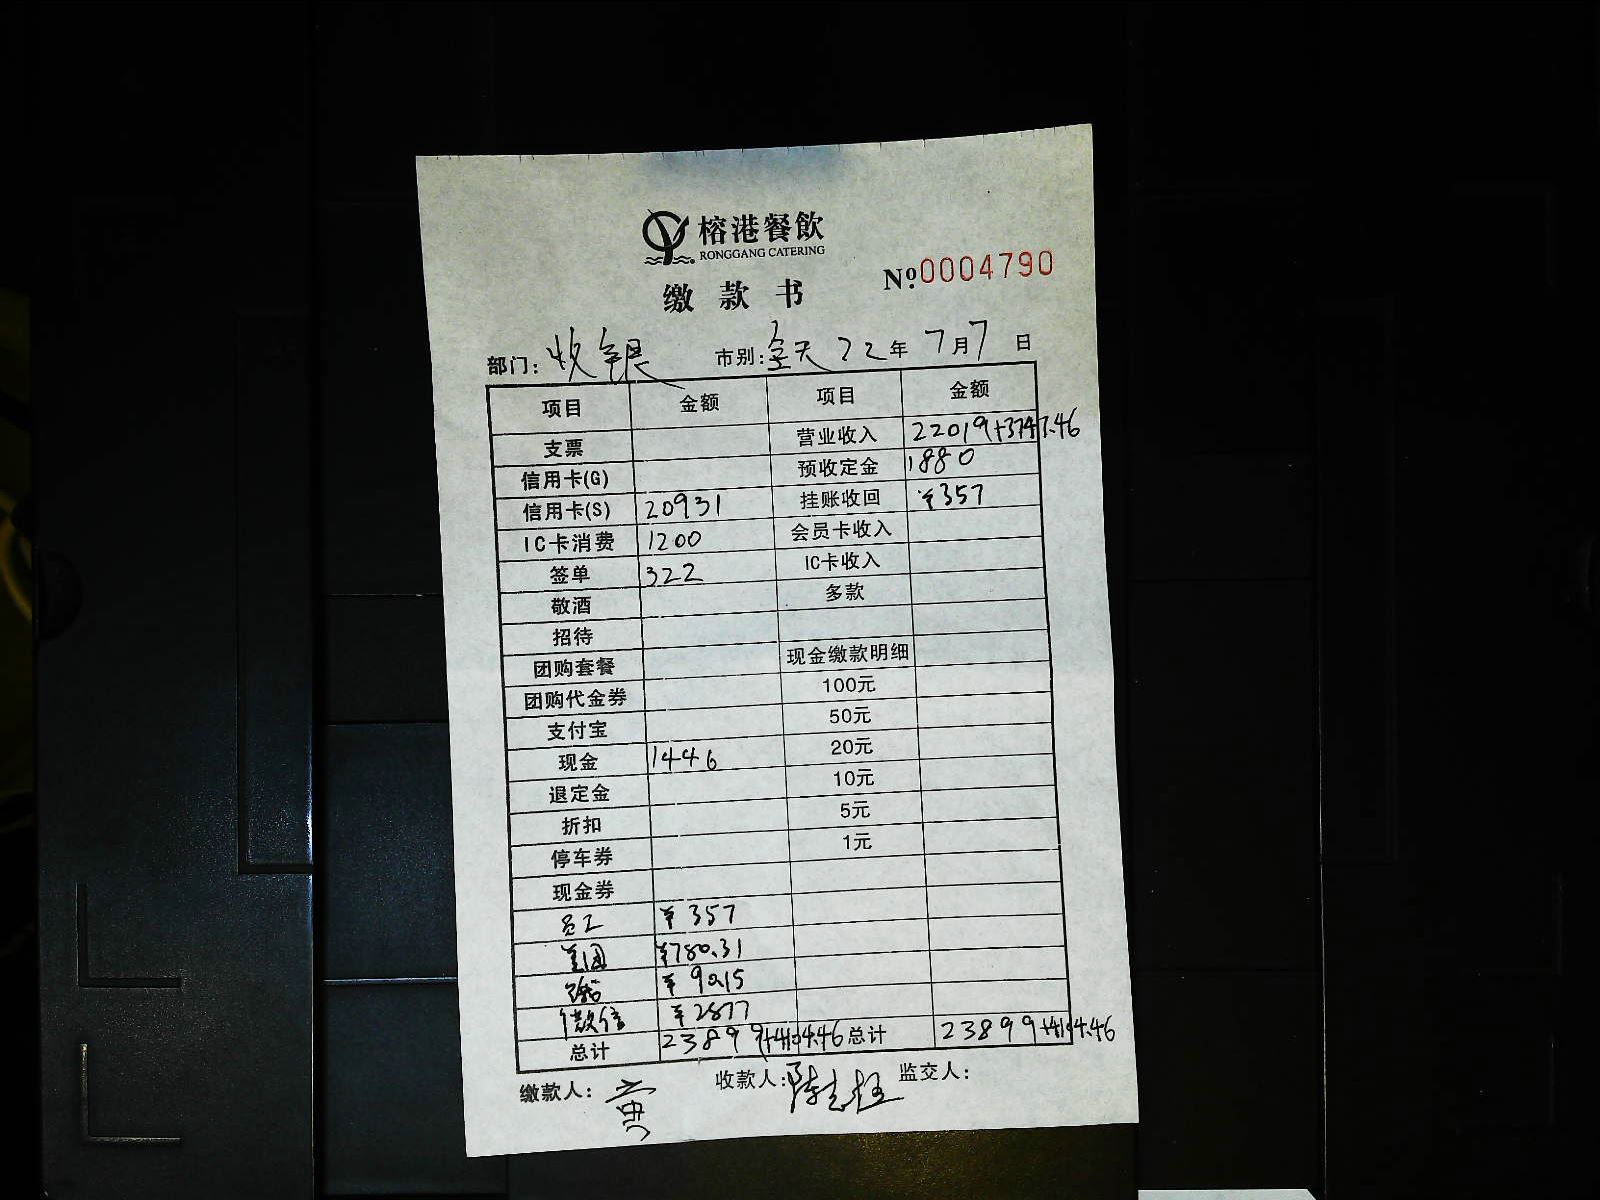 榕港餐飲
RONGGANG CATERING
缴款书
№:0004790
部门:收银 市别:全天 22年7月7日
项目 金额 项目 金额
支票 营业收入 22019+3747.46
信用卡(G) 预收定金 1880
信用卡(S) 20931 挂账收回 ¥357
IC卡消费 1200 会员卡收入
签单 322 IC卡收入
敬酒 多款
招待
团购套餐 现金缴款明细
团购代金券 100元
支付宝 50元
现金 1446 20元
退定金 10元
折扣 5元
停车券 1元
现金券
员工 ¥357
美团 ¥780.31
¥90.15
微信 ¥2877
总计 23899+4104.46 总计 23899+4104.46
缴款人:黄 收款人:陈 监交人: